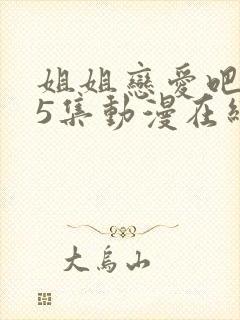 姐姐戀愛吧
5集動漫在線
大烏山